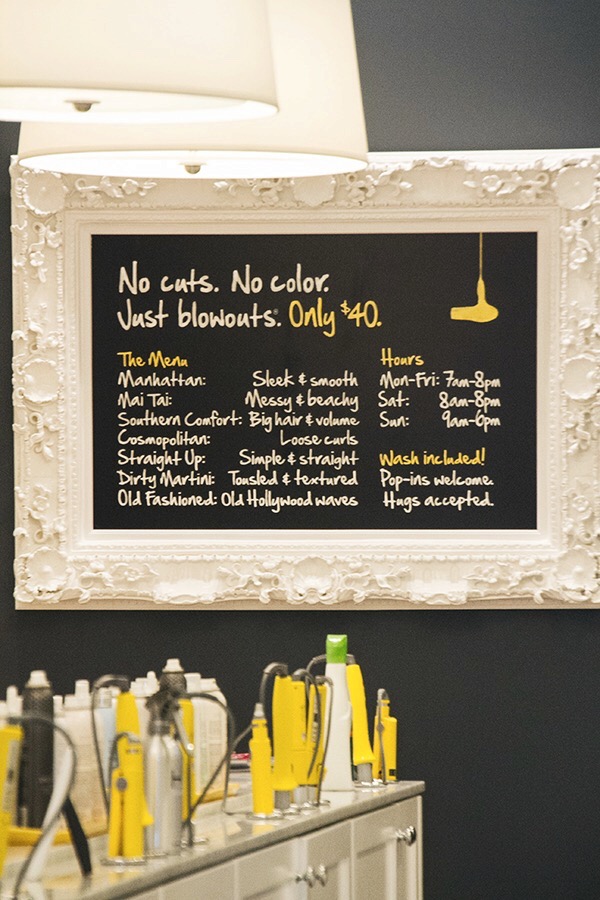 No cuts. No color.
Just blowouts.® Only $40.
The Menu
Manhattan: Sleek & smooth
Mai Tai: Messy & beachy
Southern Comfort: Big hair & volume
Cosmopolitan: Loose curls
Straight Up: Simple & straight
Dirty Martini: Tousled & textured
Old Fashioned: Old Hollywood waves
Hours
Mon-Fri: 7am-8pm
Sat: 8am-8pm
Sun: 9am-6pm
Wash included!
Pop-ins welcome.
Hugs accepted.